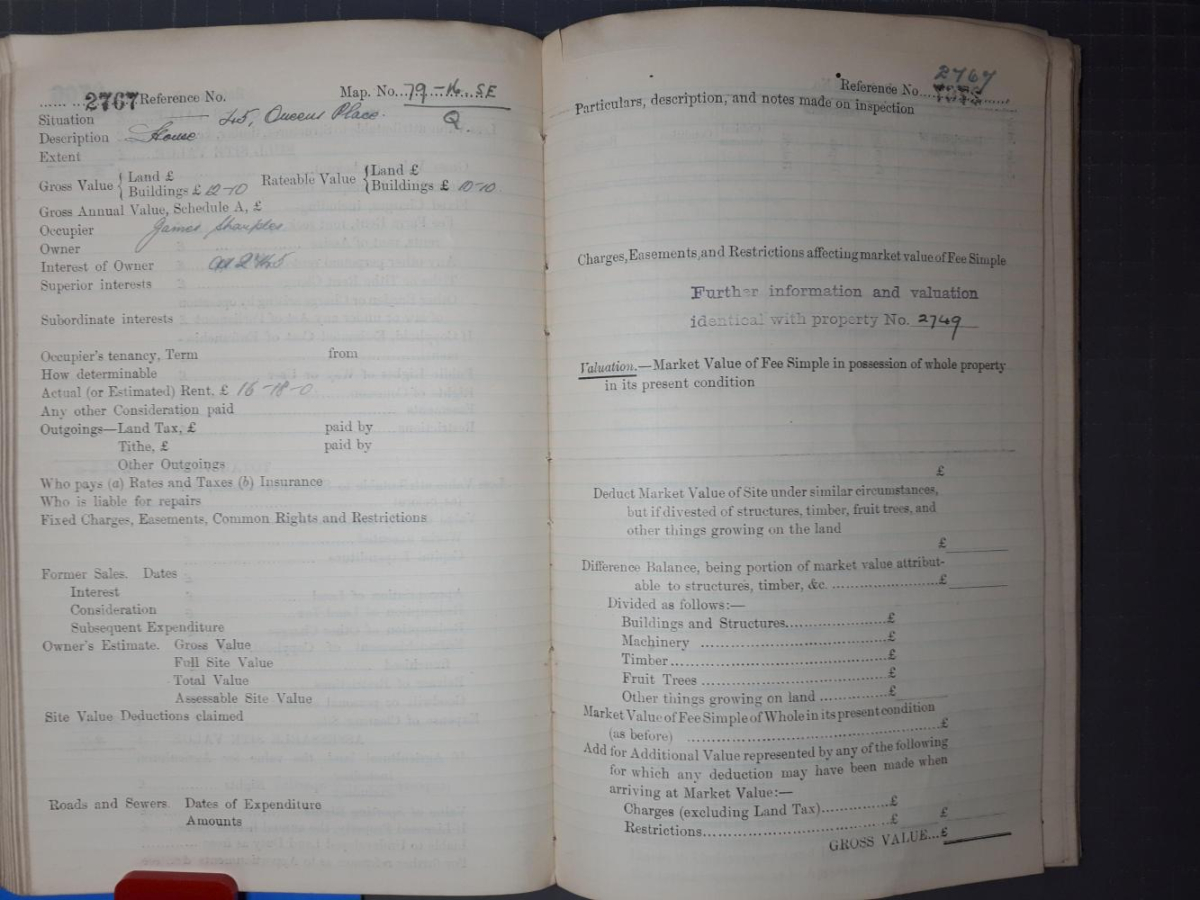 2767 Reference No. Map. No. 79-16. SE
Situation 45, Queens Place. Q.
Description House
Extent
Gross Value { Land £ Rateable Value { Land £
Buildings £ 12-10 Buildings £ 10-10
Gross Annual Value, Schedule A, £
Occupier James Sharples
Owner
Interest of Owner as 2745
Superior interests
Subordinate interests
Occupier's tenancy, Term from
How determinable
Actual (or Estimated) Rent, £ 16-18-0
Any other Consideration paid
Outgoings—Land Tax, £ paid by
Tithe, £ paid by
Other Outgoings
Who pays (a) Rates and Taxes (b) Insurance
Who is liable for repairs
Fixed Charges, Easements, Common Rights and Restrictions
Former Sales. Dates
Interest
Consideration
Subsequent Expenditure
Owner's Estimate. Gross Value
Full Site Value
Total Value
Assessable Site Value
Site Value Deductions claimed
Roads and Sewers. Dates of Expenditure
Amounts
2767
Reference No.
Particulars, description, and notes made on inspection
Charges, Easements, and Restrictions affecting market value of Fee Simple
Further information and valuation
identical with property No. 2749
Valuation.—Market Value of Fee Simple in possession of whole property
in its present condition
£
Deduct Market Value of Site under similar circumstances,
but if divested of structures, timber, fruit trees, and
other things growing on the land
£
Difference Balance, being portion of market value attribut-
able to structures, timber, &c. £
Divided as follows:—
Buildings and Structures £
Machinery £
Timber £
Fruit Trees £
Other things growing on land £
Market Value of Fee Simple of Whole in its present condition
(as before) £
Add for Additional Value represented by any of the following
for which any deduction may have been made when
arriving at Market Value:—
Charges (excluding Land Tax) £
Restrictions £ £
GROSS VALUE...£